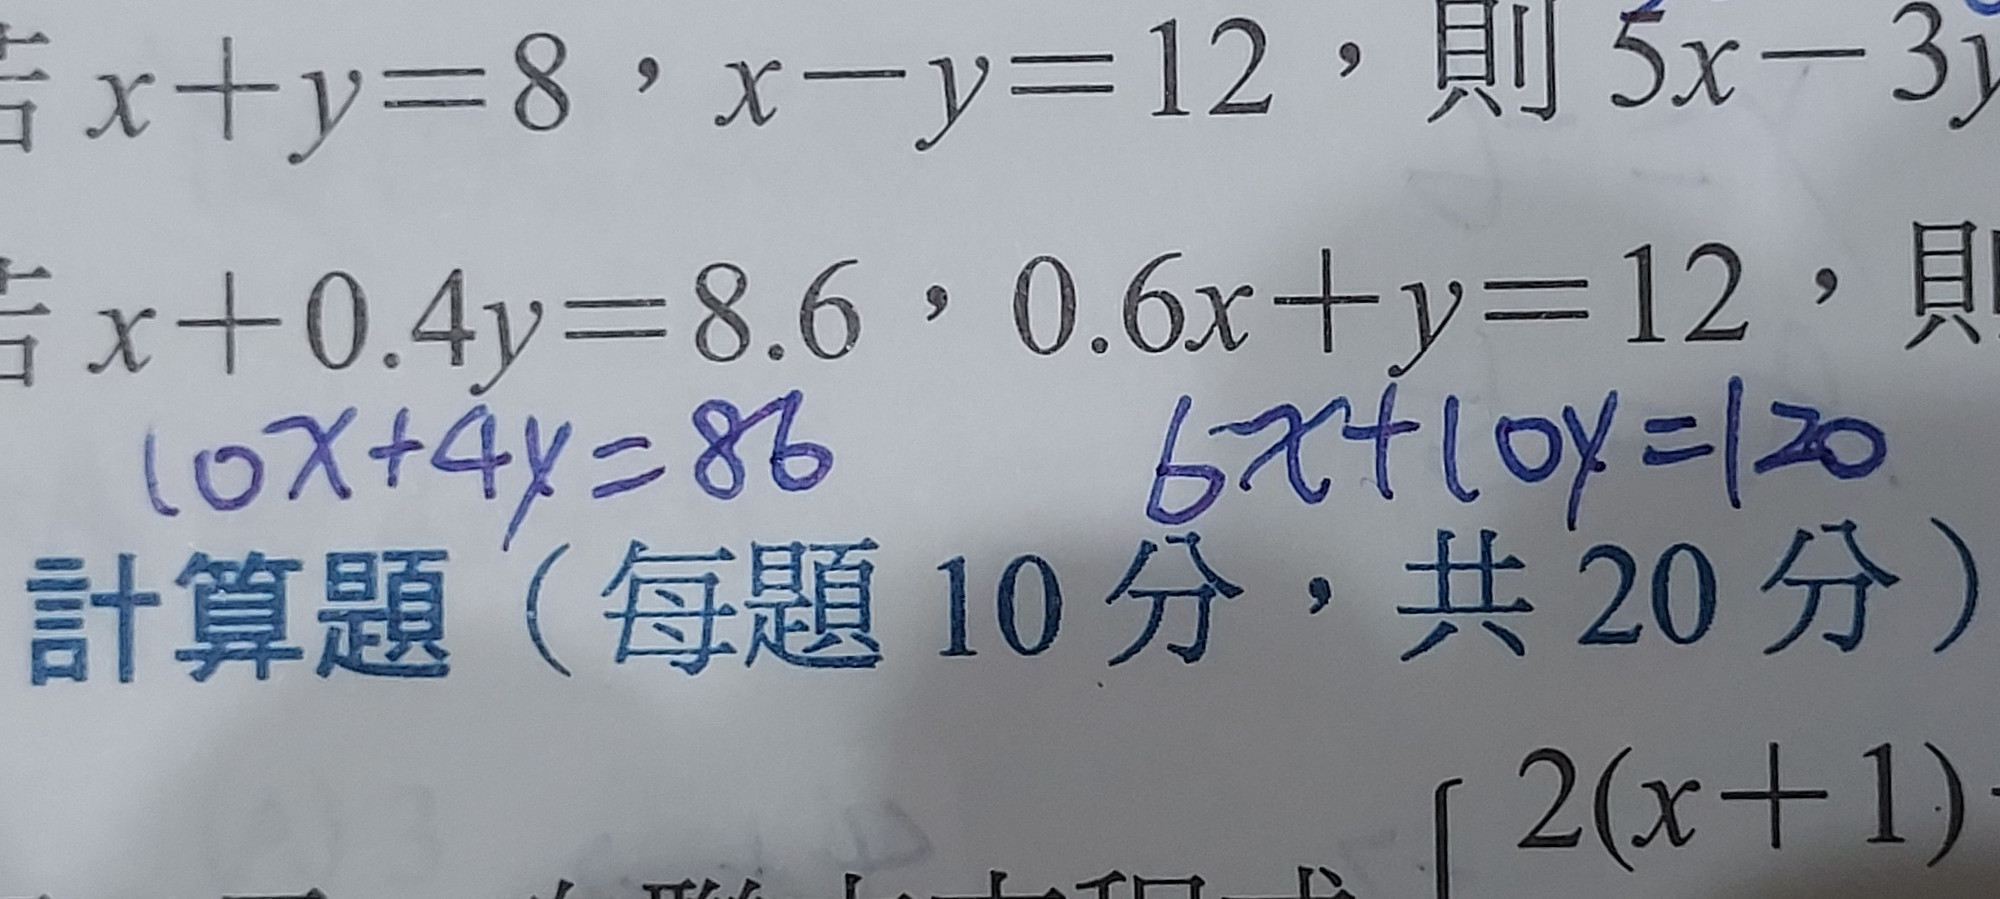 若 x＋y＝8，x－y＝12，則 5x－3y
若 x＋0.4y＝8.6，0.6x＋y＝12，則
10x+4y=86 6x+10y=120
計算題（每題 10 分，共 20 分）
2(x＋1)